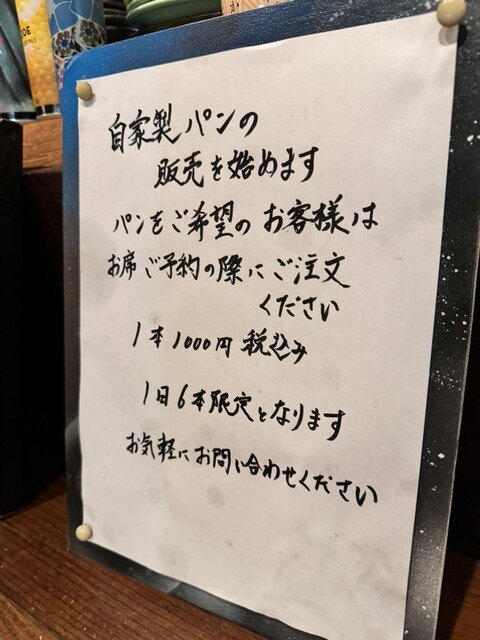 自家製パンの
販売を始めます
パンをご希望のお客様は
お席ご予約の際にご注文
ください
1本1000円税込み
1日6本限定となります
お気軽にお問い合わせください